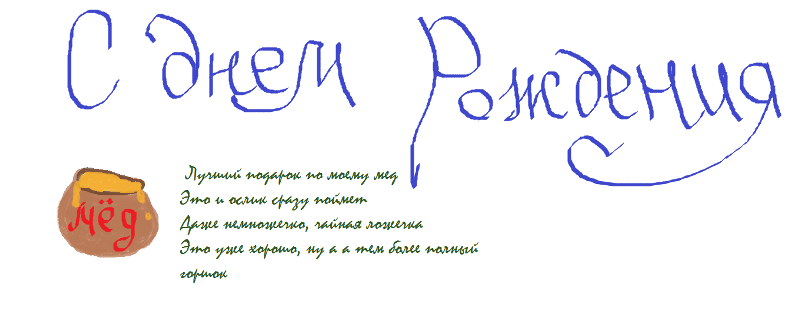 С днем Рождения
мёд
Лучший подарок по моему мед
Это и ослик сразу поймет
Даже немножечко, чайная ложечка
Это уже хорошо, ну а а тем более полный
горшок